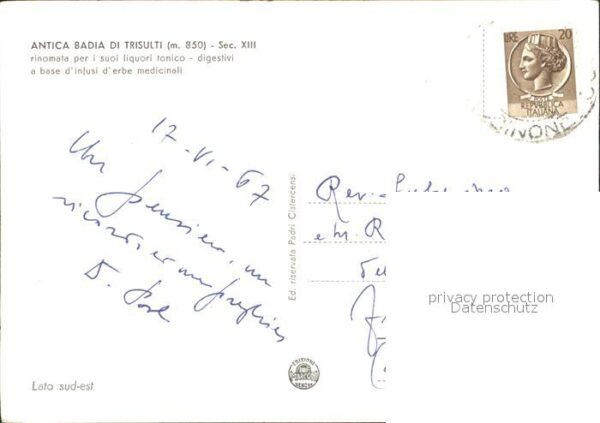 ANTICA BADIA DI TRISULTI (m. 850) - Sec. XIII
rinomata per i suoi liquori tonico - digestivi
a base d'infusi d'erbe medicinali
LIRE 20
REPVBBLICA
ITALIANA
17-VI-67
Un pensiero, un
ricordo e una preghiera
D.
Rev.
Ed. riservata Padri Cistercensi
privacy protection
Datenschutz
Lato sud-est